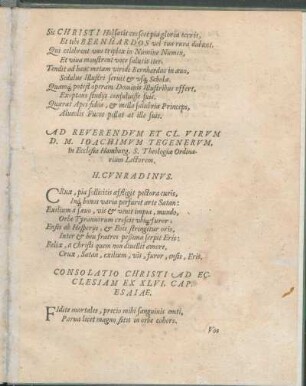 Sic CHRISTI Holsatis crescet pia gloria terris,
Et tibi BERNHARDOS vel tua rura dabunt.
Qui celebrent uno triplex in Numine Numen,
Et viva monstrent voce salutis iter.
Tendit ad hanc metam
Scholae illustri servit &
potest operam Dominis illustribus offert,
Exceptam studijs consuluisse suis.
Quaerat Apes sidus, & mella salubria Princeps,
Alveolis Fucos pellat at ille suis.
AD REVERENDVM ET CL. VIRVM
D. M. IOACHIMVM TEGENERVM,
In Ecclesia Hamburg. S. Theologiae Ordina-
rium Lectorem.
H. CVNRADINVS.
CRux, pia sollicitis affligit pectora curis,
Inque bonos varia perfurit arte Satan:
Exilium à saxo, vis & venit impia, mundo,
Orbe Tyrannorum crescit ubique furor:
Ensis ab Hesperijs, & Eois stringitur oris,
Inter & heu fratres pessima serpit Eris:
Felix, à Christi quem non divellet amore,
Crux, Satan, exilium, vis, furor, ensis, Eris.
CONSOLATIO CHRISTI AD EC-
CLESIAM EX XLVI. CAP.
ESAIAE.
FIdite mortales, precio mihi sanguinis emti,
Parva licet magno sitis in orbe cohors.
Vos